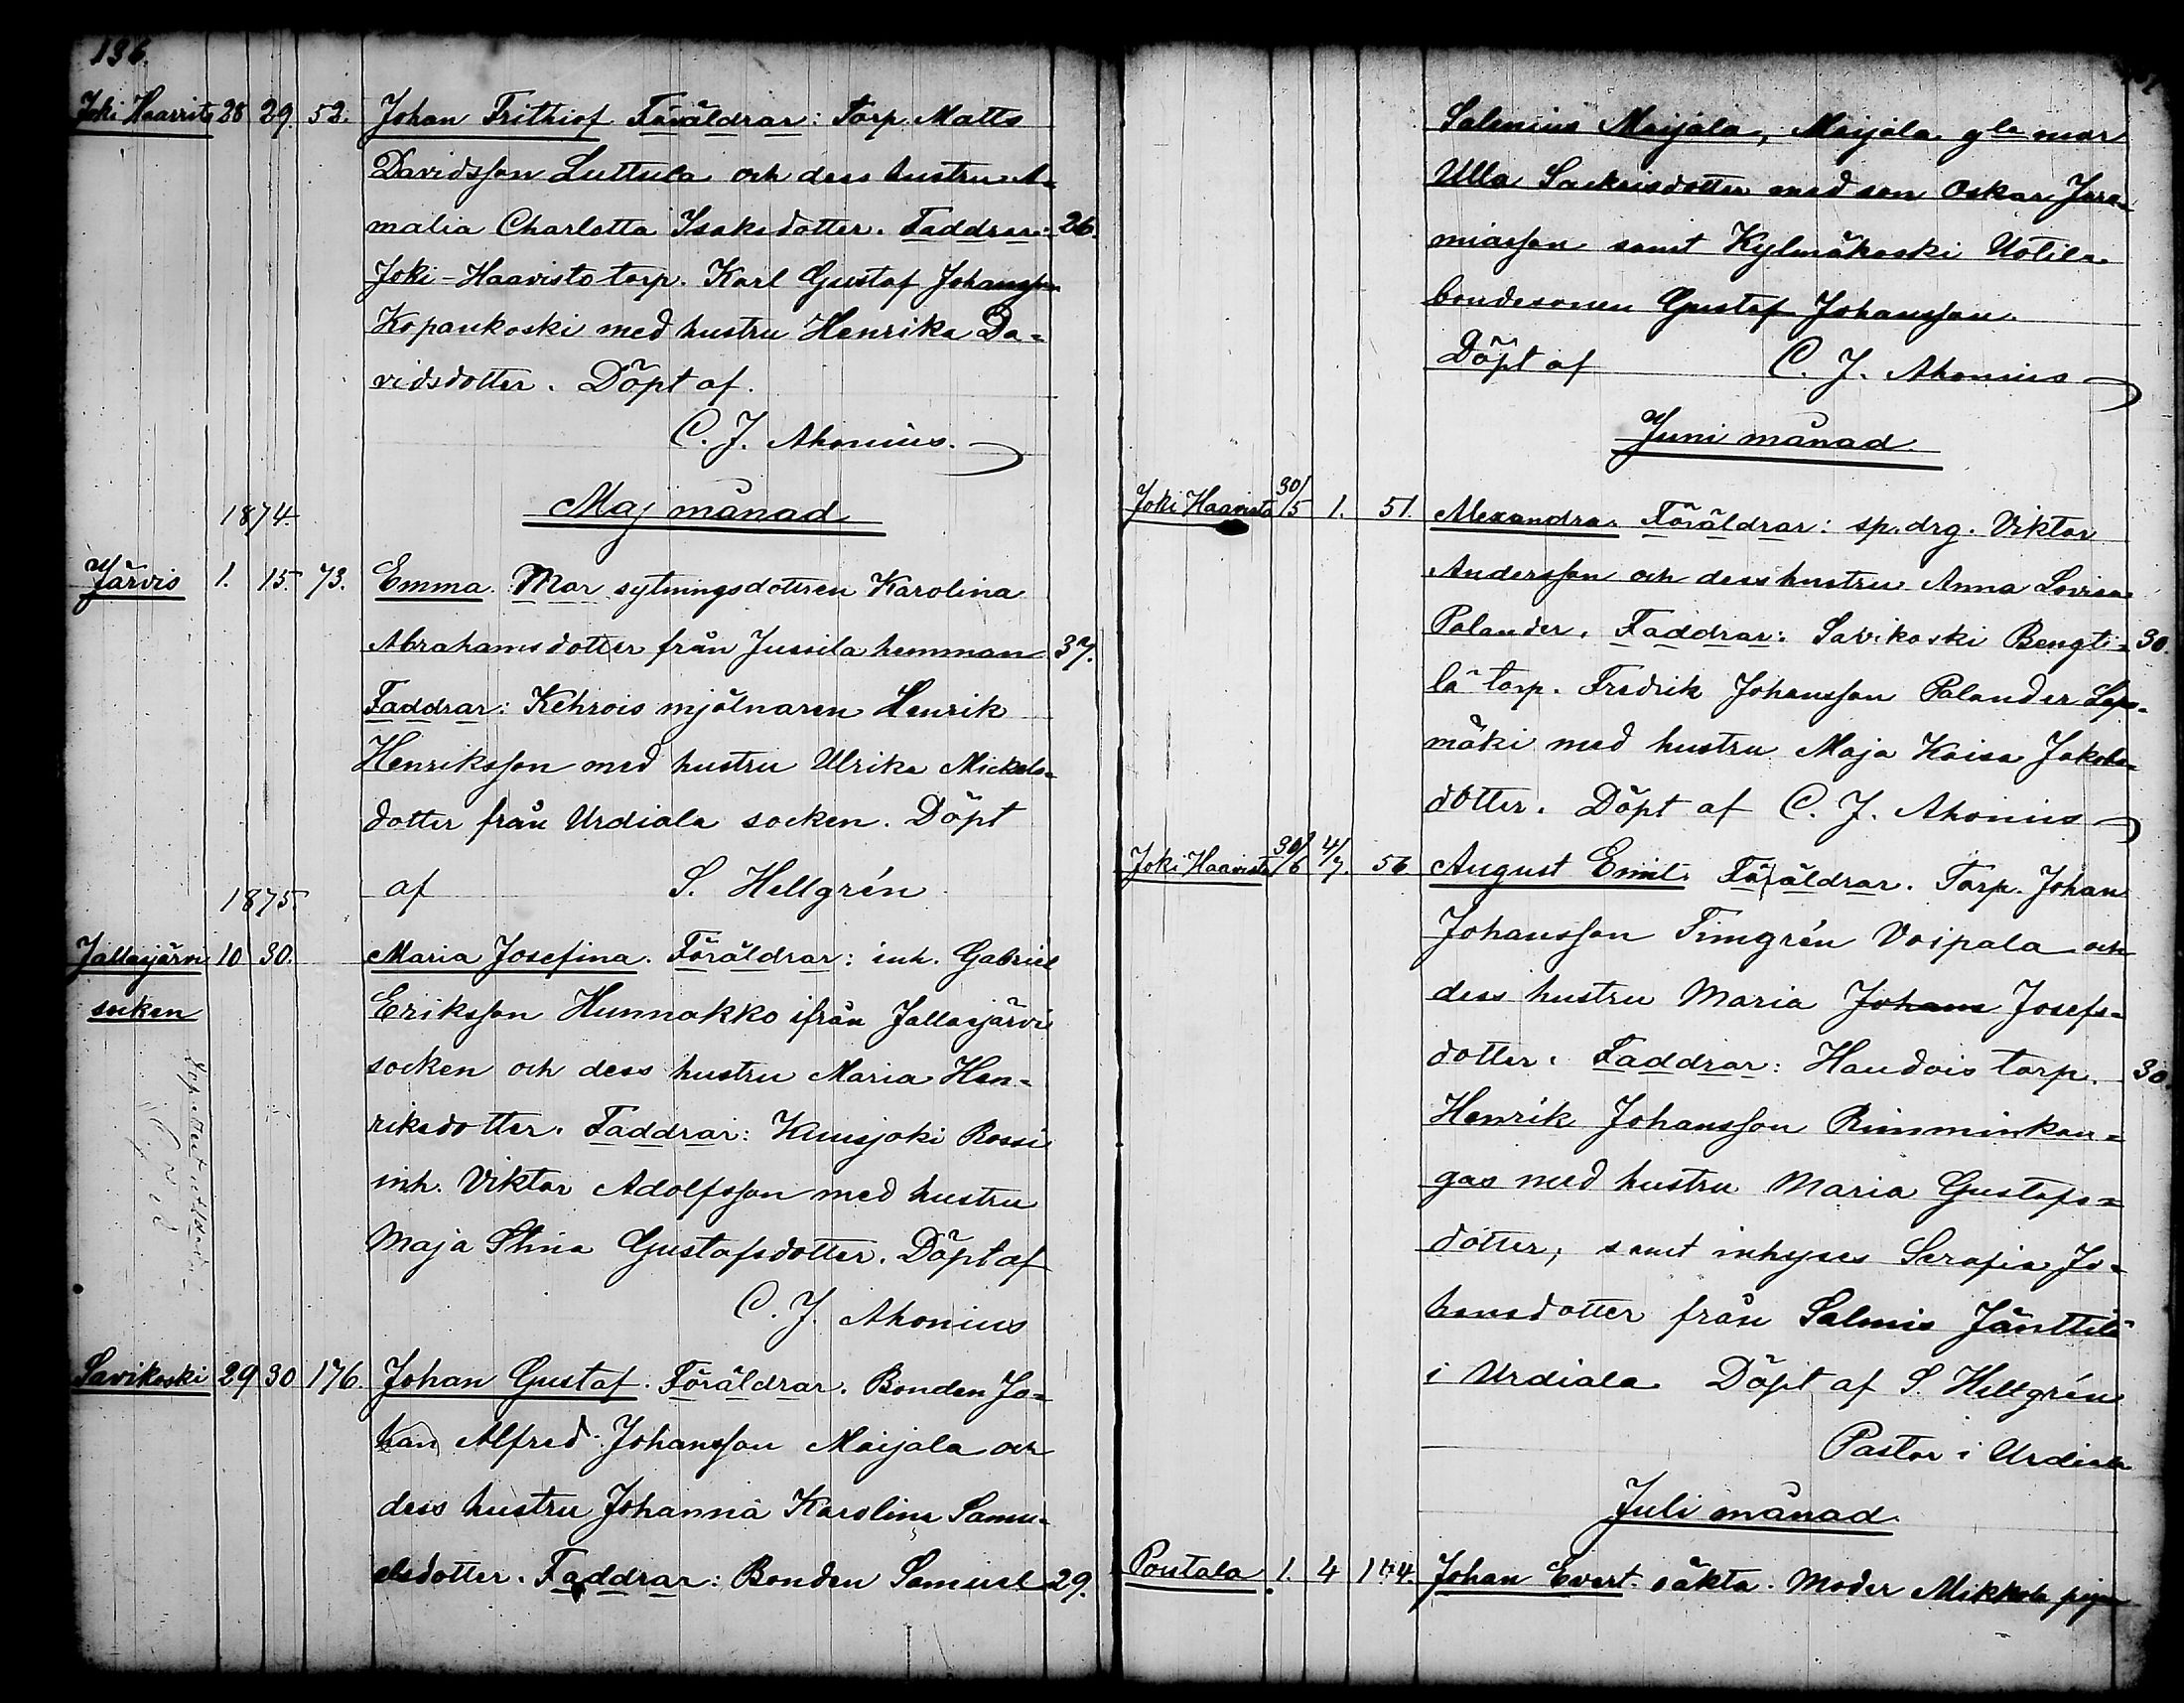 136.
Joki Haavisto 28 29. 52. Johan Frithiof Föräldrar: Torp. Matts
Davidsson Luttula och dess hustru A-
malia Charlotta Isaksdotter. Faddrar: 26.
Joki-Haavisto torp. Karl Gustaf Johansson
Kopankoski med hustru Henrika Da-
vidsdotter. Döpt af.
C. J. Ahonius.
1874 Maj månad
Järvis 1. 15. 73. Emma. Mor sytningsdottren Karolina
Abrahamsdotter från Jussila hemman 37.
Faddrar: Kehrois mjölnaren Henrik
Henriksson med hustru Ulrika Mickels-
dotter från Urdiala socken. Döpt
af S. Hellgrén
1875
Jallasjärvi 10 30. Maria Josefina. Föräldrar: inh. Gabriel
socken Eriksson Hunnakko ifrån Jallasjärvi
socken och dess hustru Maria Hen-
riksdotter. Faddrar: Kuusjoki Rossi
inh. Viktor Adolfsson med hustru
Maja Stina Gustafsdotter. Döpt af
C. J. Ahonius
Savikoski 29 30 176. Johan Gustaf. Föräldrar. Bonden Jo-
han Alfred Johansson Maijala och
dess hustru Johanna Karolina Samu-
elsdotter. Faddrar: Bonden Samuel 29.
Salenius Maijala, Maijala gla mor
Ulla Sackrisdotter med son Oskar Jere-
miasson samt Kylmäkoski Uotila
bondesonen Gustaf Johansson.
Döpt af C. J. Ahonius
Juni månad.
Joki Haavisto 30/5 1. 51. Alexandra. Föräldrar: sp. drg. Viktor
Andersson och dess hustru Anna Lovisa
Palander. Faddrar: Savikoski Bengti- 30.
lä torp. Fredrik Johansson Palander
mäki med hustru Maja Kaisa Jakobs-
dotter. Döpt af C. J. Ahonius
Joki Haavisto 30/6 4/7. 56 August Emil. Föräldrar. Torp. Johan
Johansson Timgrén Voipala och
dess hustru Maria Johans Josefs-
dotter. Faddrar: Haudois torp. 30.
Henrik Johansson Rimminkan-
gas med hustru Maria Gustafs-
dotter, samt inhyses Serafia Jo-
hansdotter från Salmis Jänttilä
i Urdiala Döpt af S. Hellgrén
Pastor i Urdiala
Juli månad.
Pontala 1. 4 144. Johan Evert. oäkta. Moder Mikkola pigan